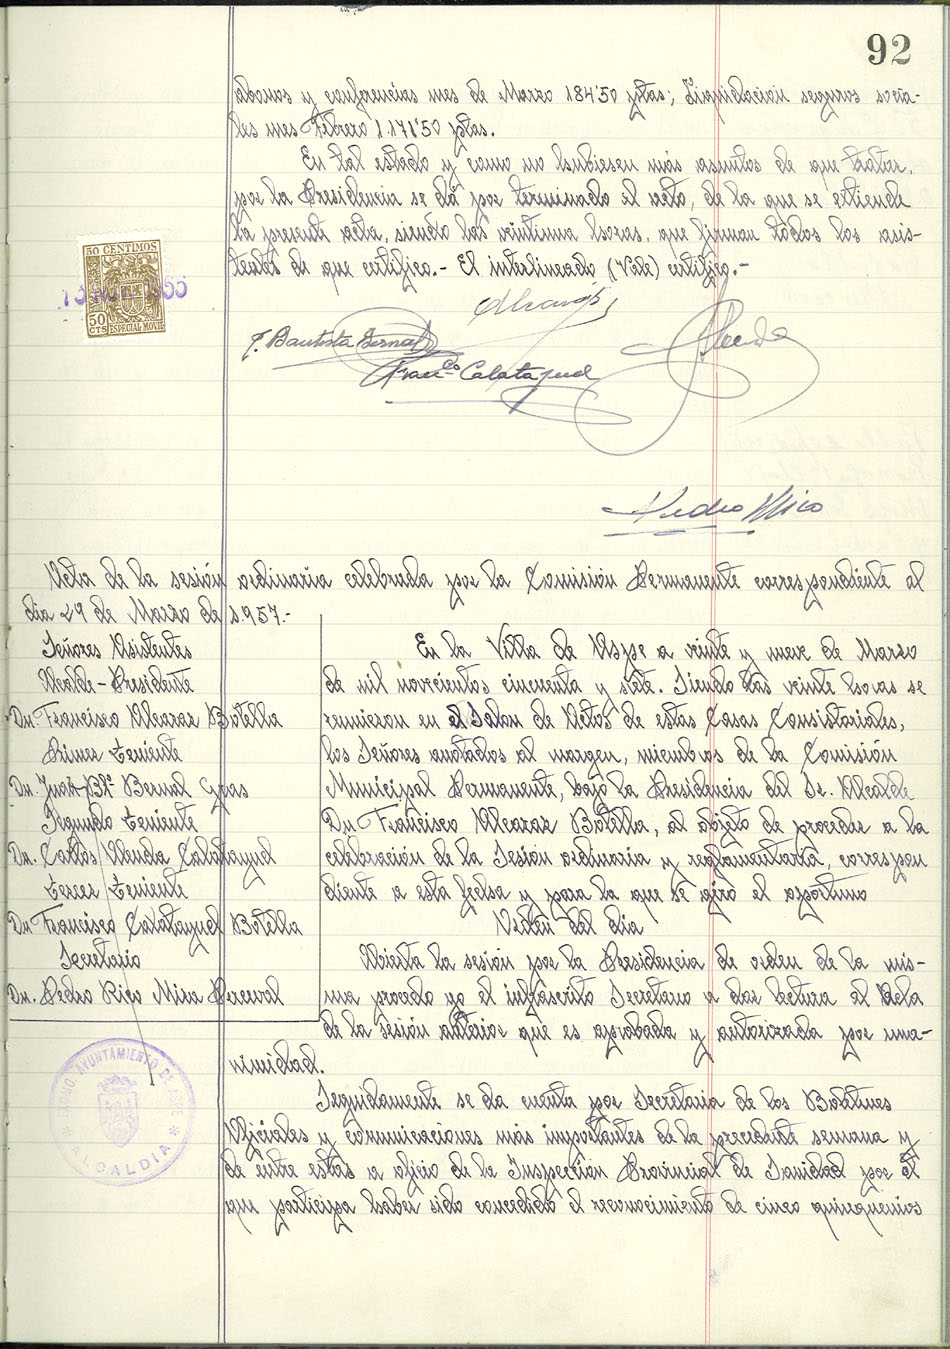 92
abonos y conferencias mes de Marzo 184'50 ptas; Liquidación seguros socia-
les mes Febrero 1.171'50 ptas.
En tal estado y como no hubiesen más asuntos de que tratar,
por la Presidencia se dá por terminado el acto, de la que se extiende
la presente acta, siendo las veintiuna horas, que firman todos los asis-
tentes de que certifico.- El interlineado (Vale) certifico.-
50 CENTIMOS
50 CTS ESPECIAL MOVIL
J. Bautista Bernal
Franco Calatayud
Pedro Mira
Acta de la sesión ordinaria celebrada por la Comisión Permanente correspondiente al
dia 29 de Marzo de 1.957.-
Señores Asistentes
Alcalde-Presidente
Dn. Francisco Alcaraz Botella
Primer teniente
Dn. Juan Btª Bernal
Segundo teniente
Dn. Carlos Calatayud
tercer teniente
Dn. Francisco Calatayud Botella
Secretario
Dn. Pedro Mira Perceval
En la Villa de Aspe a veinte y nueve de Marzo
de mil novecientos cincuenta y siete. Siendo las veinte horas se
reunieron en el Salon de Actos de estas Casas Consistoriales,
los Señores anotados al margen, miembros de la Comisión
Municipal Permanente, bajo la Presidencia del Sr. Alcalde
Dn Francisco Alcaraz Botella, al objeto de proceder a la
celebración de la Sesión ordinaria y reglamentaria, correspon
diente a esta fecha y para la que se giró el oportuno
Orden del dia
Abierta la sesión por la Presidencia de orden de la mis-
ma procedo yo el infrascrito Secretario a dar lectura al Acta
de la sesión anterior que es aprobada y autorizada por una-
nimidad.
Seguidamente se da cuenta por Secretaria de los Boletines
Oficiales y comunicaciones más importantes de la precedente semana y
de entre estas a oficio de la Inspección Provincial de Sanidad por el
que participa haber sido concedido el reconocimiento de cinco quinquenios
EXCMO. AYUNTAMIENTO DE ASPE
ALCALDIA